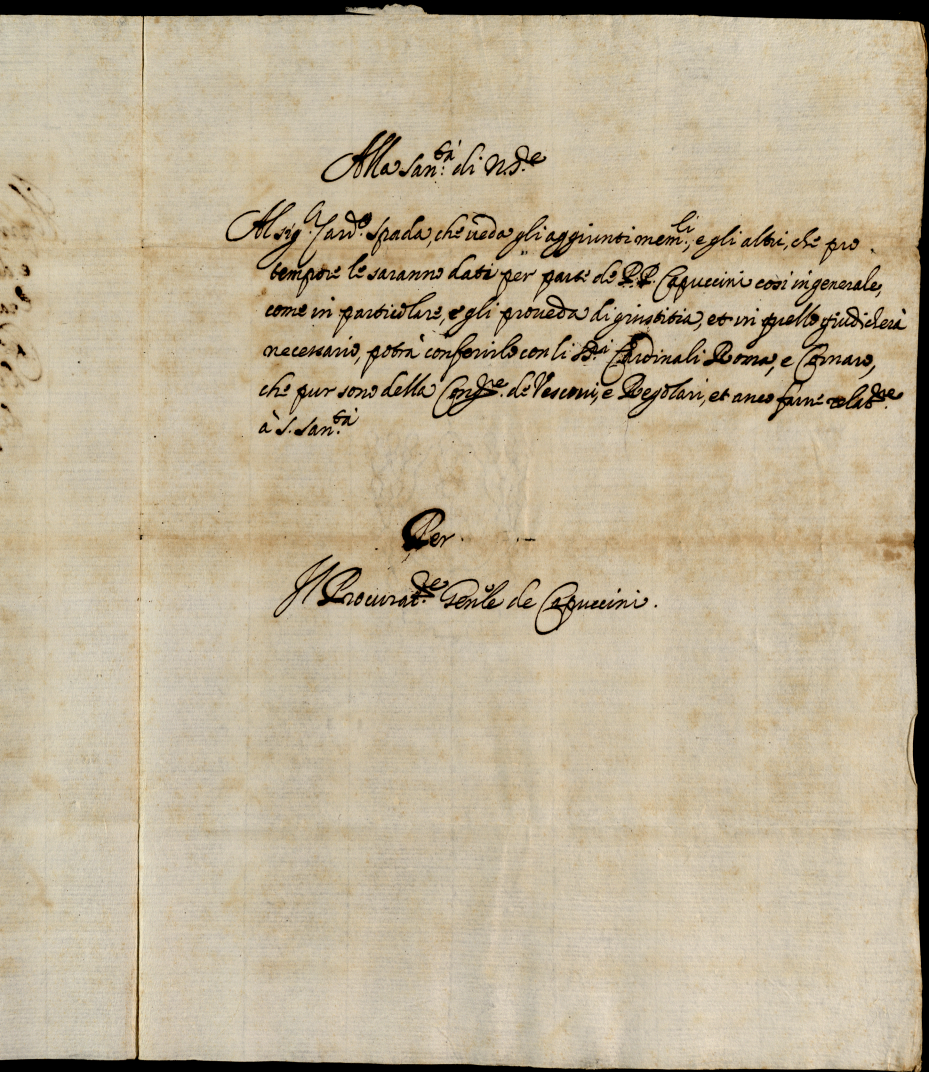 Alla San.tà di N.S.re
Al sig.r Card.l Spada, che veda gli aggiunti mem.li, e gli altri, che pro
tempore le saranno dati per parte de P.P. Capuccini così in generale,
come in particolare, e gli proveda di giustitia, et in quello giudicherà
necessario, potrà conferirlo con li S.ri Cardinali Roma, e Cornaro,
che pur sono della Cong.ne de Vescovi, e Regolari, et anco farne relat.ne
à S. San.tà
Per
Il Procurat.re Gen.le de Capuccini.